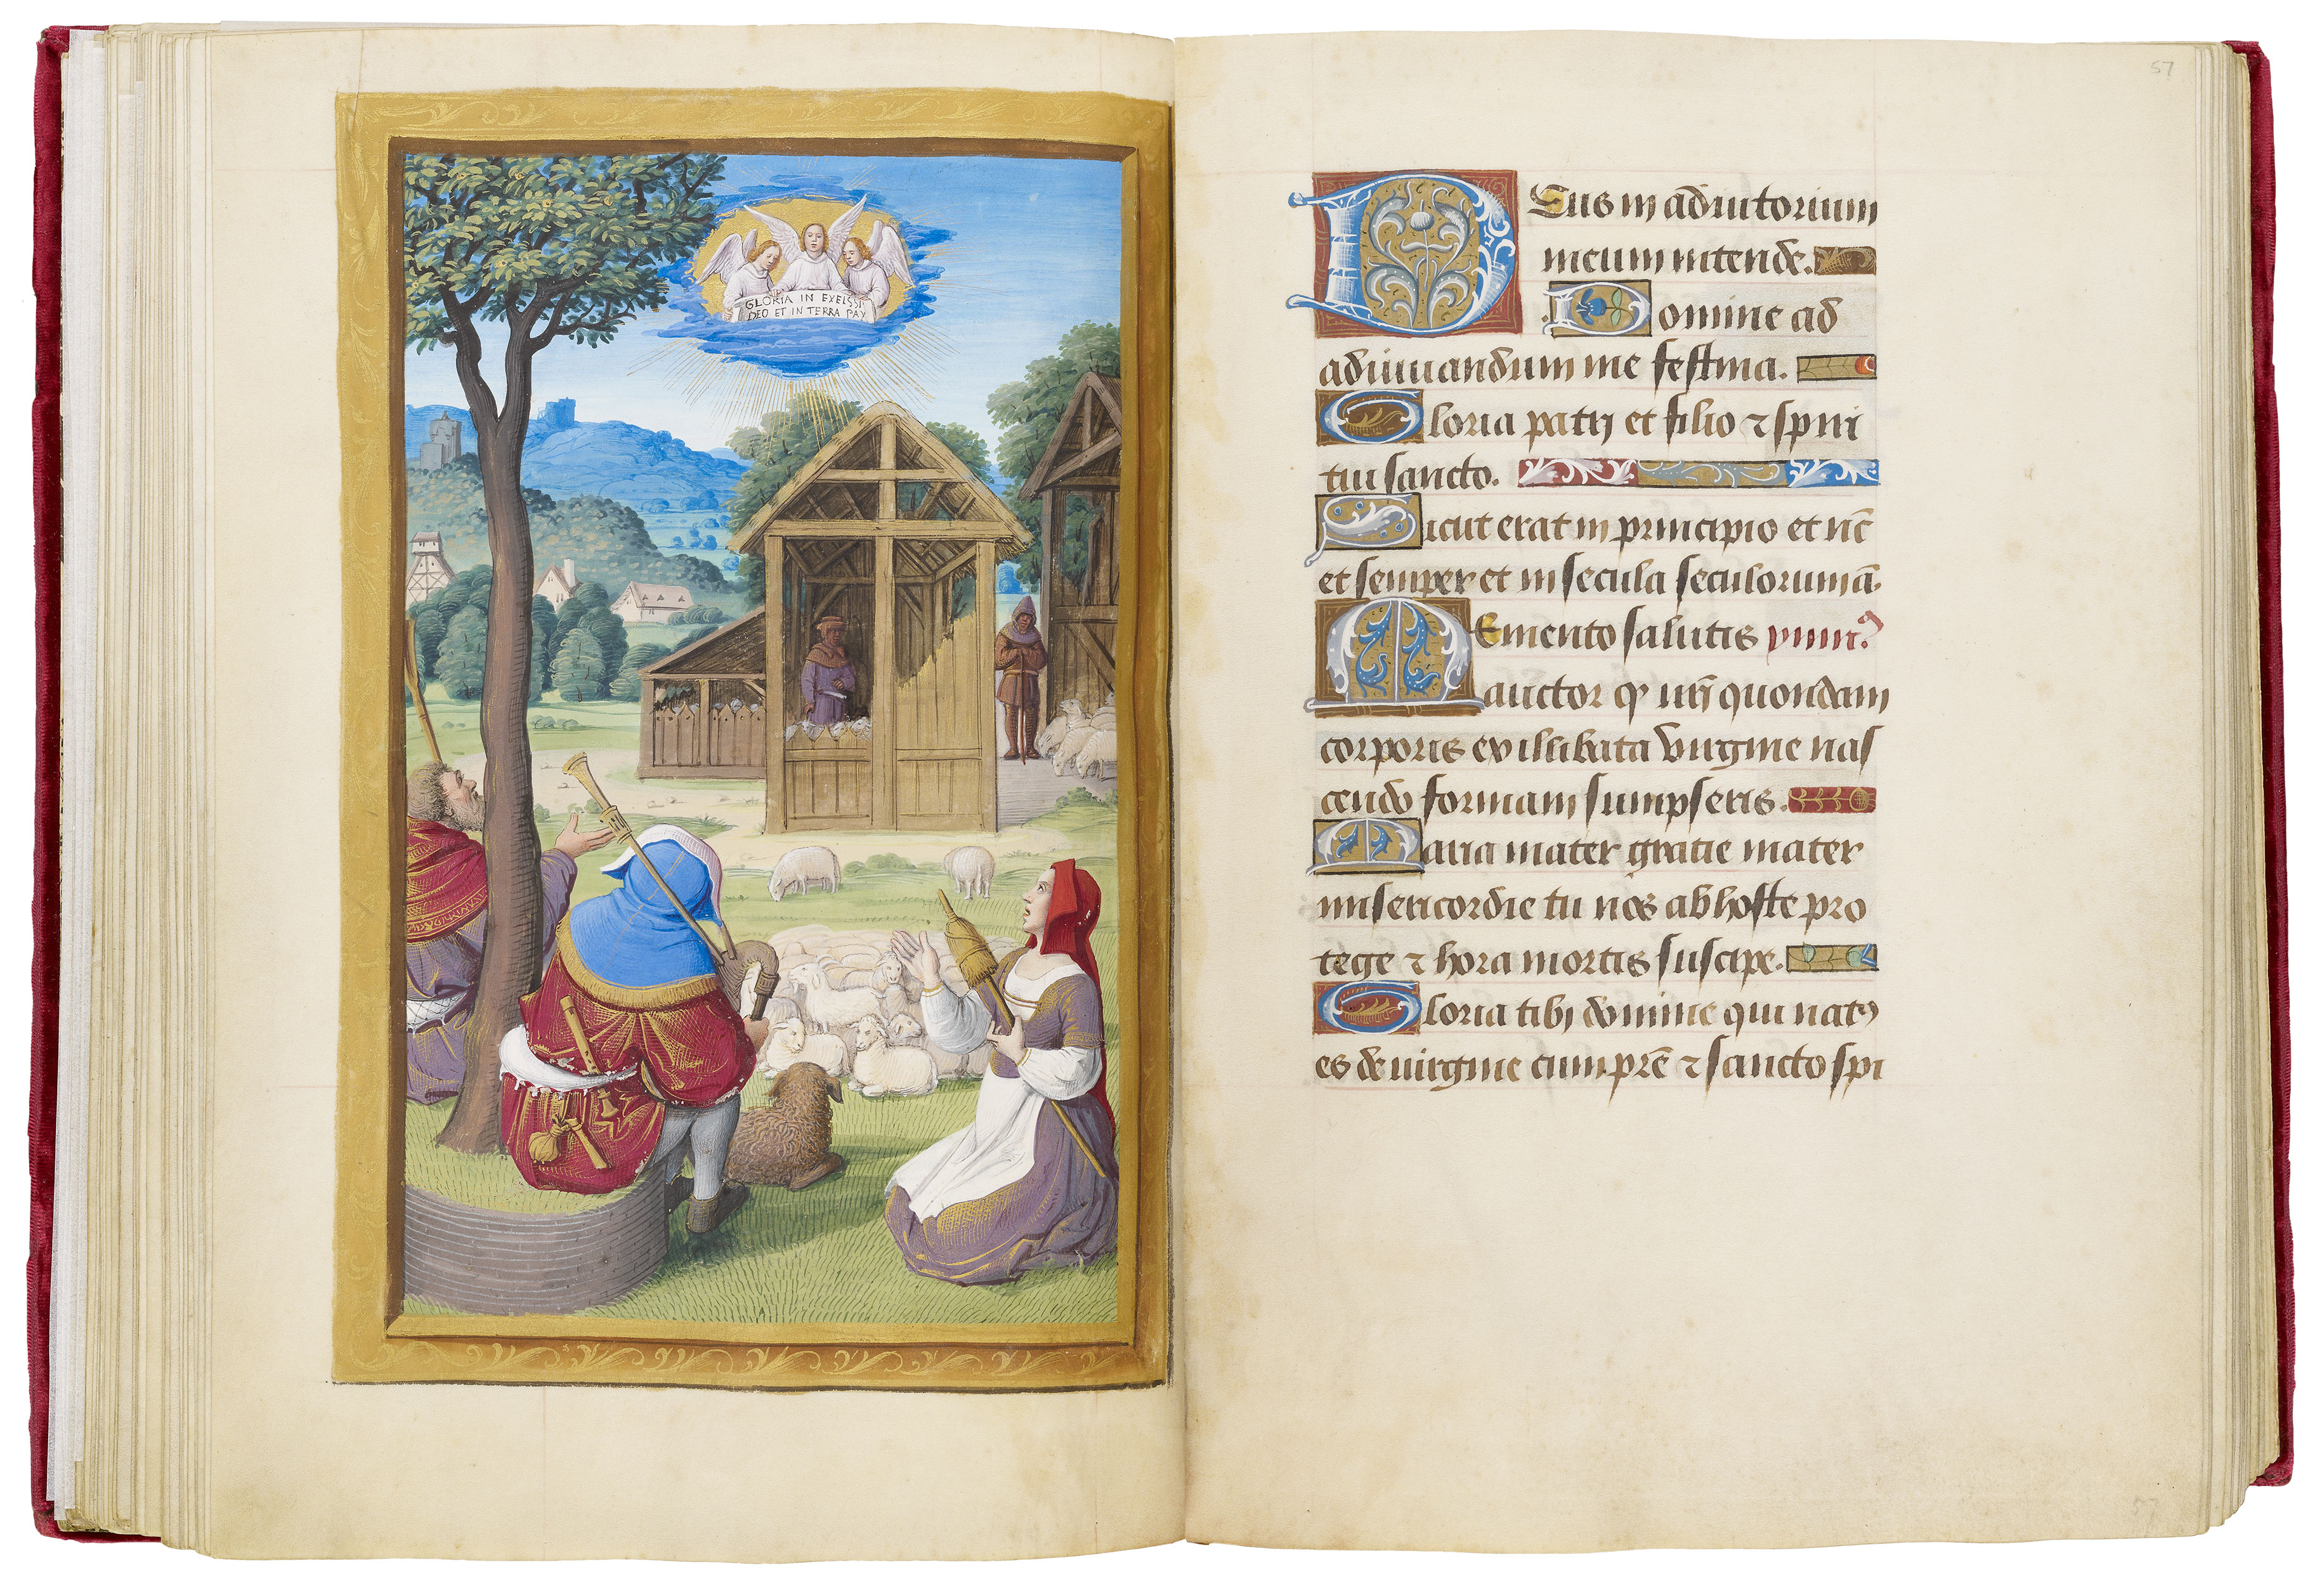 GLORIA IN EXELSSI
DEO ET IN TERRA PAX
57
Deus in adiutorium
meum intende.
Domine ad
adiuuandum me festina.
Gloria patri et filio ⁊ spiri
tui sancto.
Sicut erat in principio et nūc
et semper et in secula seculorum ā.
Memento salutis ymnꝰ
auctor ꝙ nr̄i quondam
corporis ex illibata virgine nas
cendo formam sumpseris.
Maria mater gratie mater
misericordie tu nos ab hoste pro
tege ⁊ hora mortis suscipe.
Gloria tibi domine qui natꝰ
es de uirgine cum pr̄e ⁊ sancto spi
57